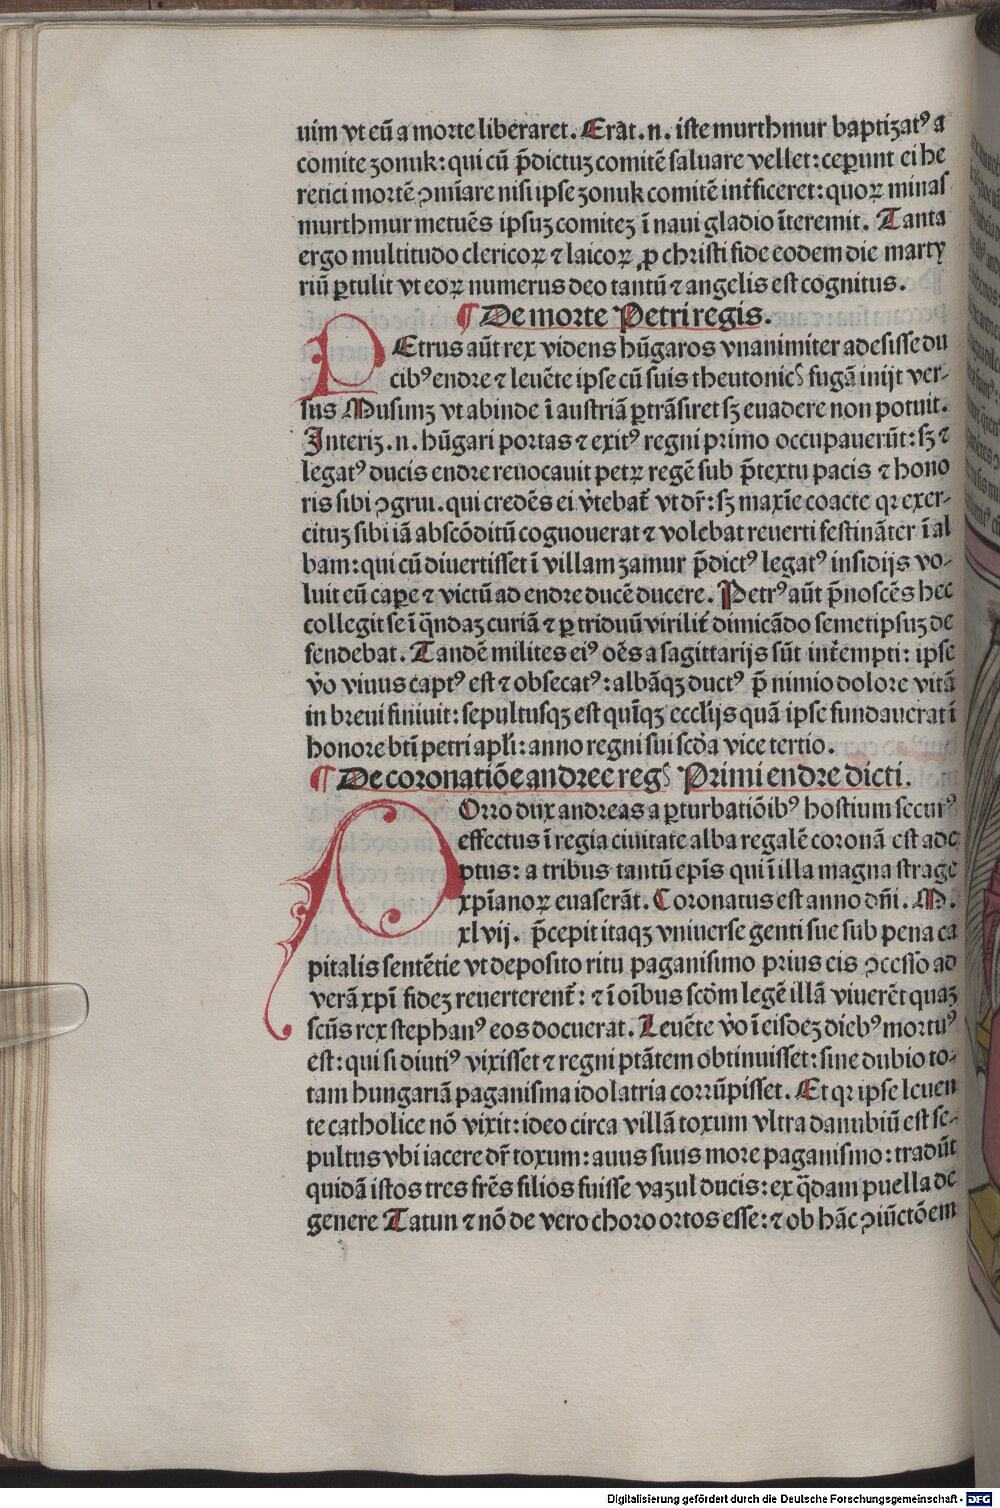 uim vt eū a morte liberaret. Erāt .n. iste murthmur baptizatꝰ a
comite zonuk: qui cū p̄dictuz comitē saluare vellet: ceꝑunt ei he
retici mortē ꝯmīare nisi ipse zonuk comitē int̄ficeret: quoꝝ minas
murthmur metuēs ipsuz comitez ī naui gladio īteremit. Tanta
ergo multitudo clericoꝝ ⁊ laicoꝝ ꝓ christi fide eodem die marty
riū ꝑtulit vt eoꝝ numerus deo tantū ⁊ angelis est cognitus.
¶ De morte Petri regis.
PEtrus aūt rex videns hūgaros vnanimiter adesisse du
cibꝰ endre ⁊ leuēte ipse cū suis theutonicꝭ fugā inijt ver-
sus Musunz vt abinde ī austriā ꝑtrāsiret sꝫ euadere non potuit.
Interiz .n. hūgari portas ⁊ exitꝰ regni primo occupauerūt: sꝫ ⁊
legatꝰ ducis endre reuocauit petꝝ regē sub p̄textu pacis ⁊ hono
ris sibi ꝯgrui. qui credēs ei v̓tebat̄ vt dr̄: sꝫ maxīe coacte qꝛ exer-
cituz sibi iā abscōditū cognouerat ⁊ volebat reuerti festināter ī al
bam: qui cū diuertisset ī villam zamur p̄dictꝰ legatꝰ insidijs vo-
luit eū caꝑe ⁊ victū ad endre ducē ducere. Petrꝰ aūt p̄noscēs hec
collegit se ī q̄ndaz curiā ⁊ ꝑ triduū virilit̄ dimicādo semetipsuz de
fendebat. Tandē milites eiꝰ oēs a sagittarijs sūt int̄empti: ipse
v̓o viuus captꝰ est ⁊ obsecatꝰ: albāqꝫ ductꝰ p̄ nimio dolore vitā
in breui finiuit: sepultusqꝫ est quīqꝫ eccl̓ijs quā ipse fundauerat ī
honore bt̄i petri apl̓i: anno regni sui scd̓a vice tertio.
¶ De coronatiōe andree regꝭ Primi endre dicti.
POrro dux andreas a ꝑturbatiōibꝰ hostium securꝰ
effectus ī regia ciuitate alba regalē coronā est ade
ptus: a tribus tantū ep̄is qui ī illa magna strage
xp̄ianoꝝ euaserāt. Coronatus est anno dn̄i. M.
xlvij. p̄cepit itaqꝫ vniuerse genti sue sub pena ca
pitalis sentētie vt deposito ritu paganismo prius eis ꝯcesso ad
verā xp̄i fidez reuerterent̄: ⁊ ī oībus scd̓m legē illā viuerēt quaz
scūs rex stephanꝰ eos docuerat. Leuēte v̓o ī eisdez diebꝰ mortuꝰ
est: qui si diutiꝰ vixisset ⁊ regni ptātem obtinuisset: sine dubio to-
tam hungariā paganisma idolatria corrūpisset. Et qꝛ ipse leuen
te catholice nō vixit: ideo circa villā toxum vltra danubiū est se-
pultus vbi iacere dr̄ toxum: auus suus more paganismo: tradūt
quidā istos tres fr̄es filios fuisse vazul ducis: ex q̄dam puella de
genere Tatun ⁊ nō de vero choro ortos esse: ⁊ ob hāc ꝯiūctōem
Digitalisierung gefördert durch die Deutsche Forschungsgemeinschaft - DFG